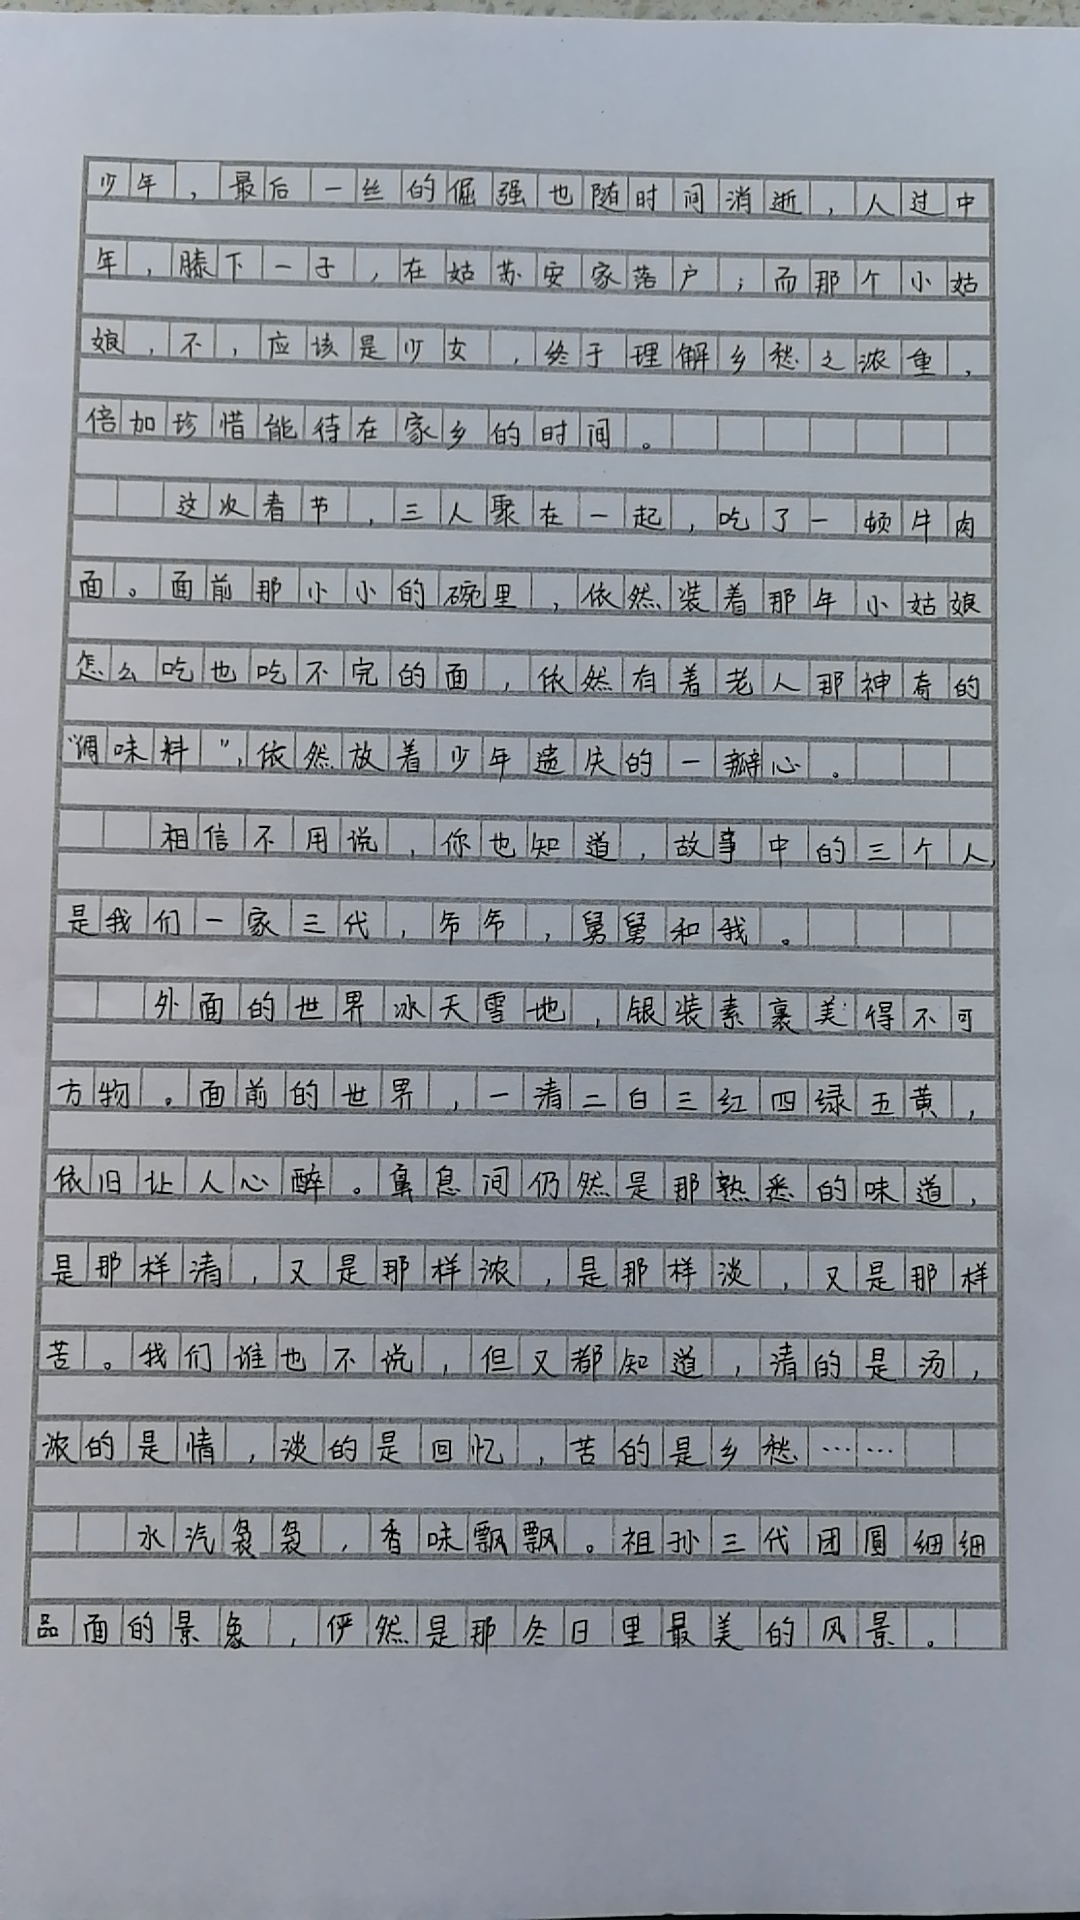 少年，最后一丝的倔强也随时间消逝，人过中
年，膝下一子，在姑苏安家落户；而那个小姑
娘，不，应该是少女，终于理解乡愁之浓重，
倍加珍惜能待在家乡的时间。
这次春节，三人聚在一起，吃了一顿牛肉
面。面前那小小的碗里，依然装着那年小姑娘
怎么吃也吃不完的面，依然有着老人那神奇的
“调味料”，依然放着少年遗失的一瓣心。
相信不用说，你也知道，故事中的三个人，
是我们一家三代，爷爷，舅舅和我。
外面的世界冰天雪地，银装素裹美得不可
方物。面前的世界，一清二白三红四绿五黄，
依旧让人心醉。鼻息间仍然是那熟悉的味道，
是那样清，又是那样浓，是那样淡，又是那样
苦。我们谁也不说，但又都知道，清的是汤，
浓的是情，淡的是回忆，苦的是乡愁……
水汽袅袅，香味飘飘。祖孙三代团圆细细
品面的景象，俨然是那冬日里最美的风景。